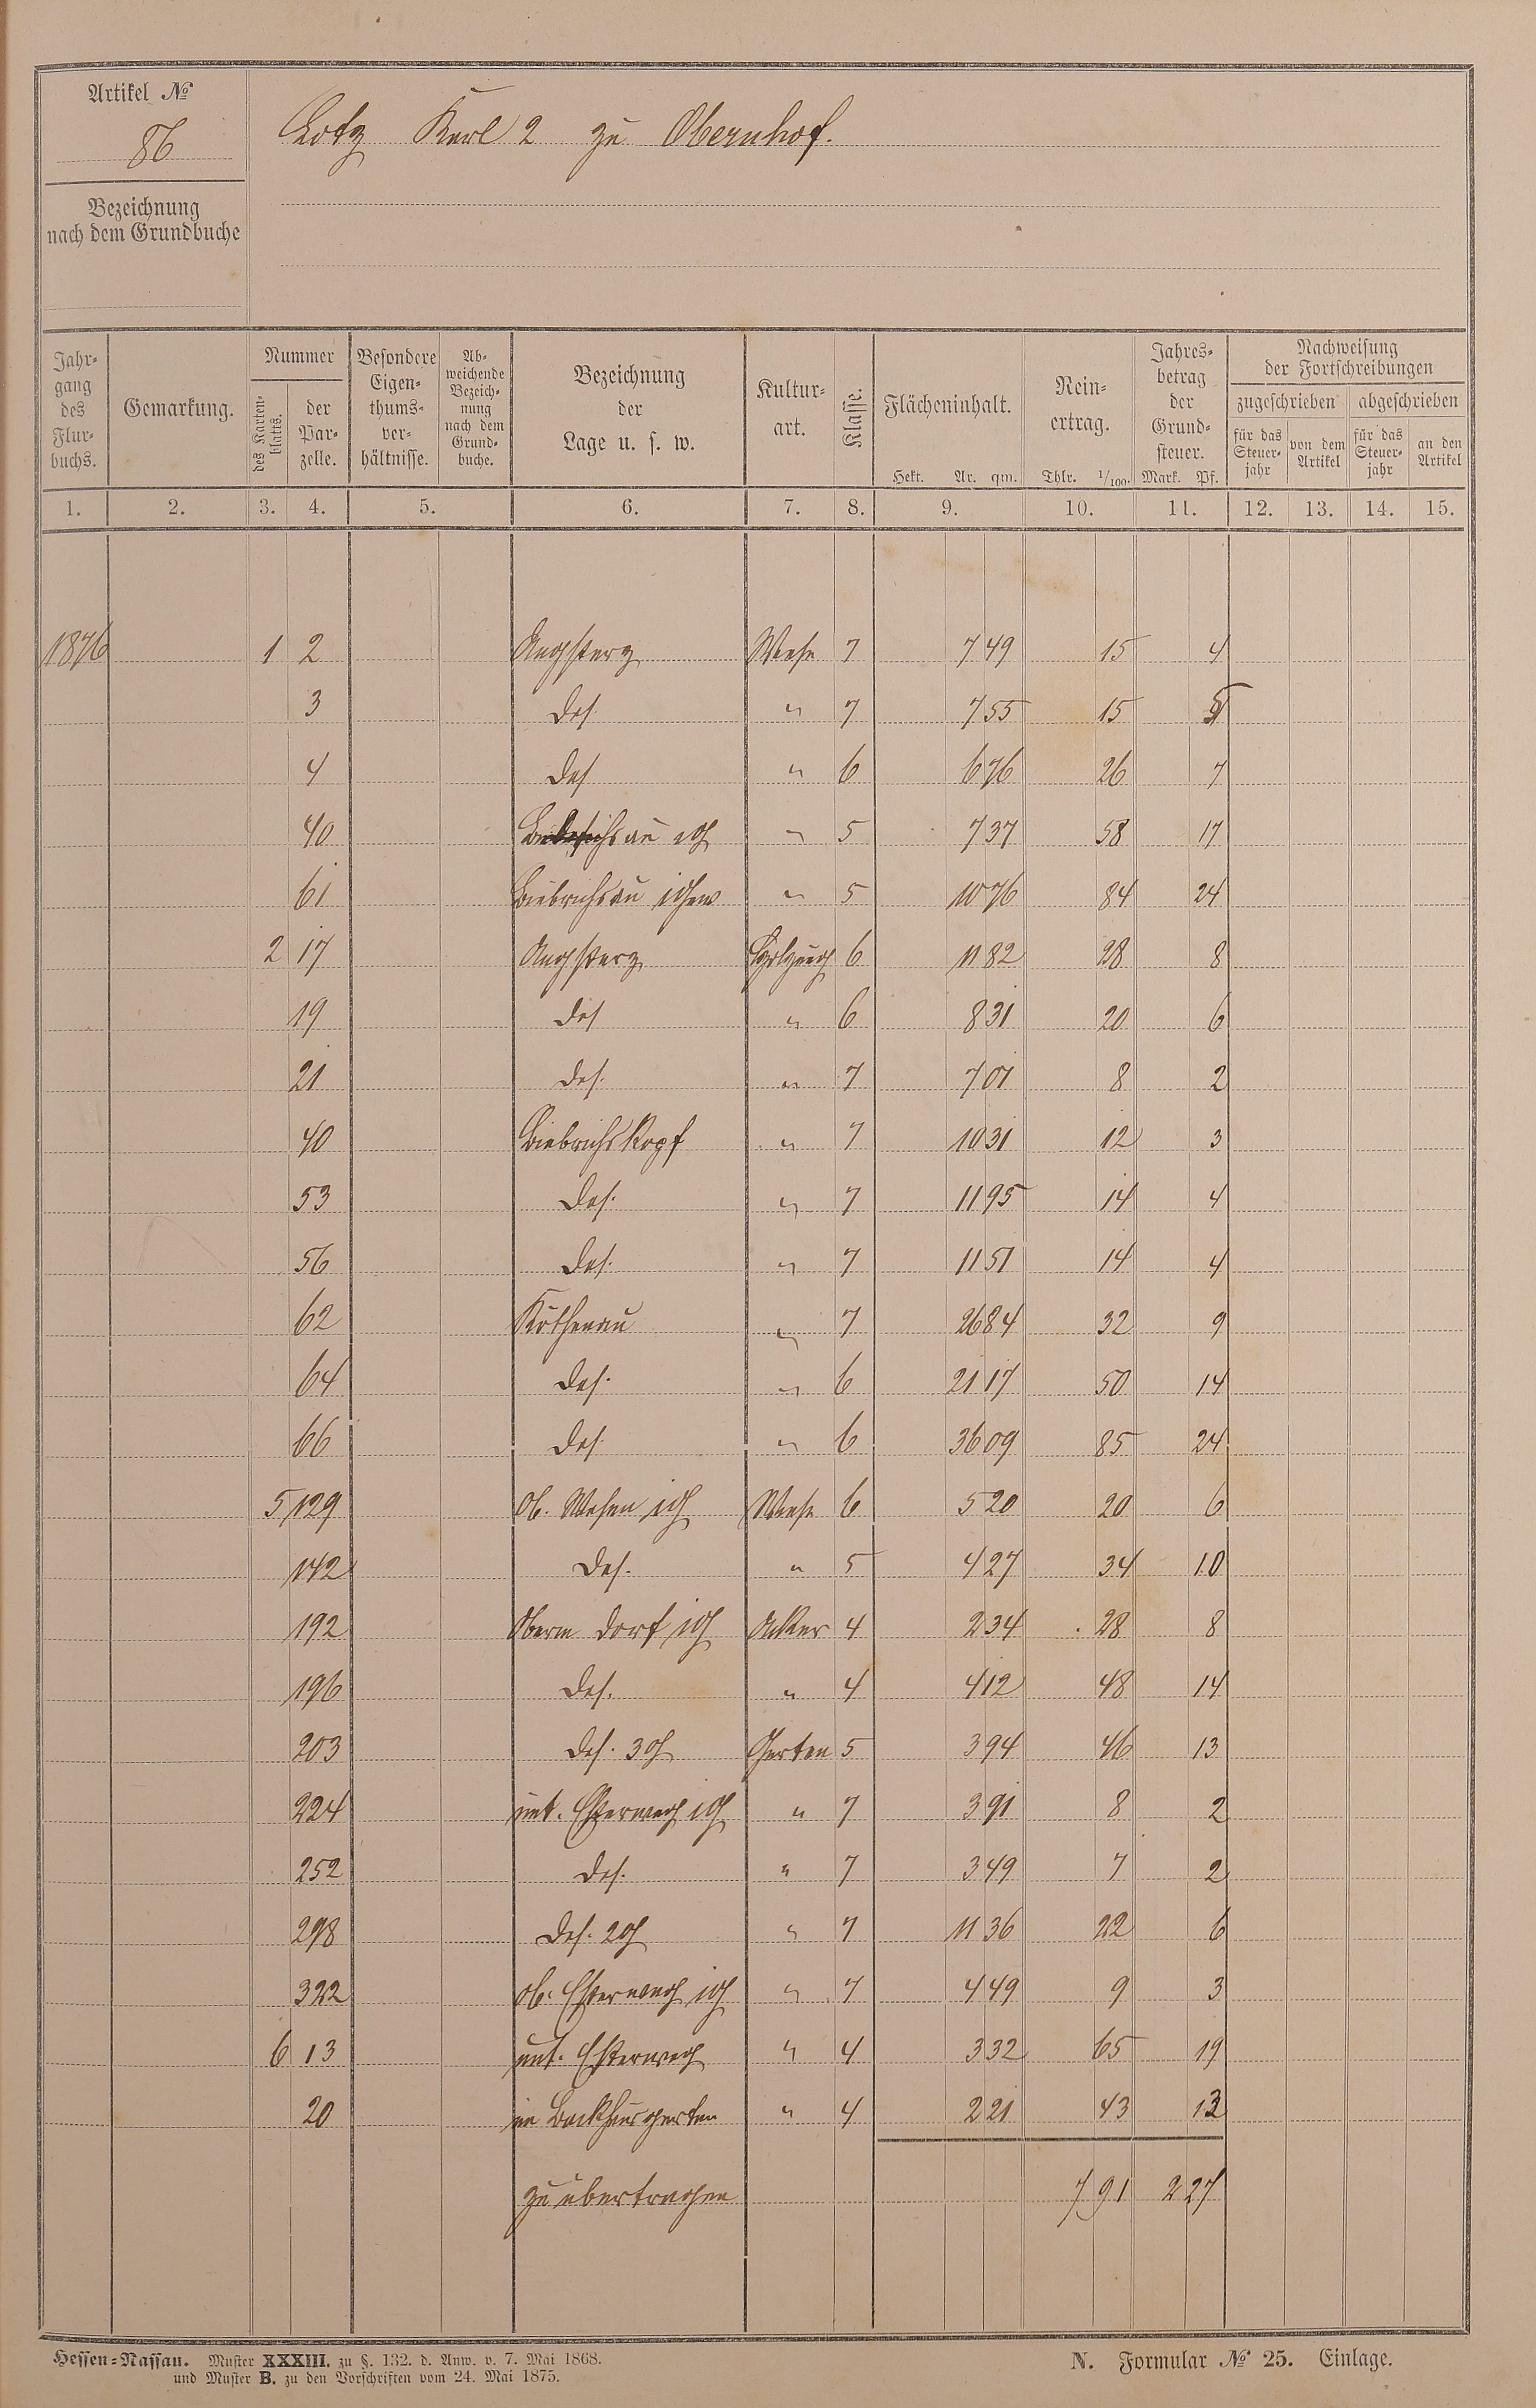 Artikel №
86
Lotz Karl 2 zu Obernhof.
Bezeichnung
nach dem Grundbuche
Jahr-
gang
des
Flur-
buchs.
Gemarkung.
Nummer
des Karten-
blatts.
der
Par-
zelle.
Besondere
Eigen-
thums-
ver-
hältnisse.
Ab-
weichende
Bezeich-
nung
nach dem
Grund-
buche.
Bezeichnung
der
Lage u. s. w.
Kultur-
art.
Klasse.
Flächeninhalt.
Hekt. Ar. qm.
Rein-
ertrag.
Thlr. 1/100.
Jahres-
betrag
der
Grund-
steuer.
Mark. Pf.
Nachweisung
der Fortschreibungen
zugeschrieben abgeschrieben
für das
Steuer-
jahr
von dem
Artikel
für das
Steuer-
jahr
an den
Artikel
1. 2. 3. 4. 5. 6. 7. 8. 9. 10. 11. 12. 13. 14. 15.
1876 1 2 Wiese 7 7 49 15 4
3 das. " 7 7 55 15 5
4 das " 6 6 76 26 7
40 " 5 7 37 58 17
61 Biebrichsau " 5 10 76 84 24
2 17 Holzung 6 11 82 28 8
19 das " 6 8 31 20 6
21 das. " 7 7 01 8 2
40 Biebrichskopf " 7 10 31 12 3
53 das. " 7 11 95 14 4
56 das. " 7 11 51 14 4
62 Köthenau " 7 26 84 32 9
64 das. " 6 21 17 50 14
66 das. " 6 36 09 85 24
5 129 Ob. Wiesen 1g Wiese 6 5 20 20 6
142 das. " 5 4 27 34 10
192 Oberm Dorf 1g Acker 4 2 34 28 8
196 das. " 4 4 12 48 14
203 das. 3g Garten 5 3 94 46 13
224 unt. 1g " 7 3 91 8 2
252 das. " 7 3 49 7 2
298 das. 2g " 7 11 36 22 6
322 ob. 1g " 7 4 49 9 3
6 13 unt. " 4 3 32 65 19
20 im Backhausgarten " 4 2 21 43 12
zu übertragen 7 91 2 27
Hessen-Nassau. Muster XXXIII. zu §. 132. d. Anw. v. 7. Mai 1868.
und Muster B. zu den Vorschriften vom 24. Mai 1875.
N. Formular № 25. Einlage.